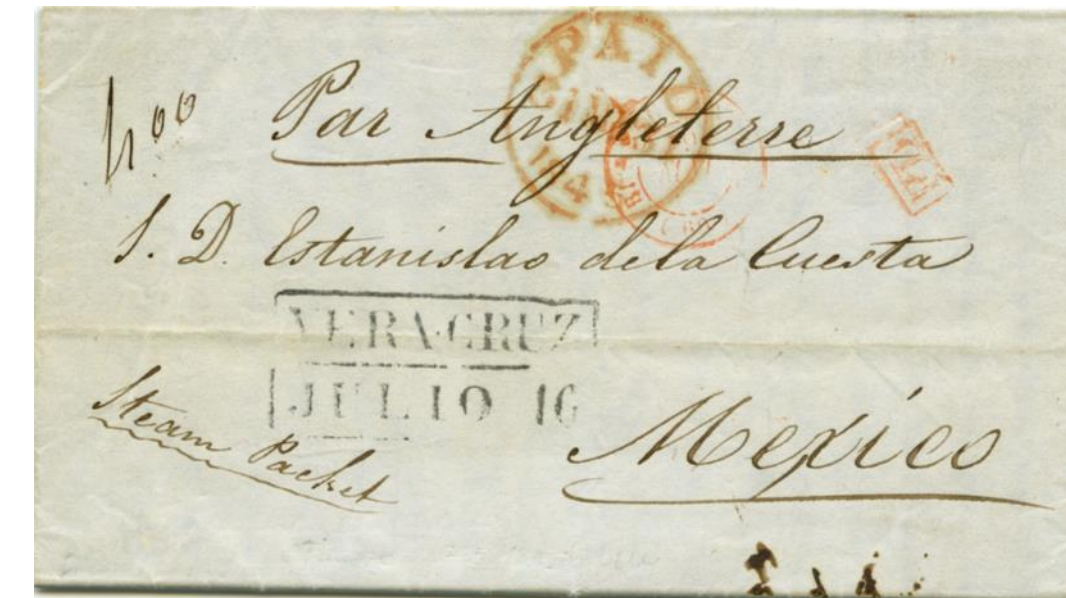 PAID
Par Angleterre
S. D. Estanislao dela Cuesta
VERA-CRUZ
JULIO 16
Steam Packet
Mexico